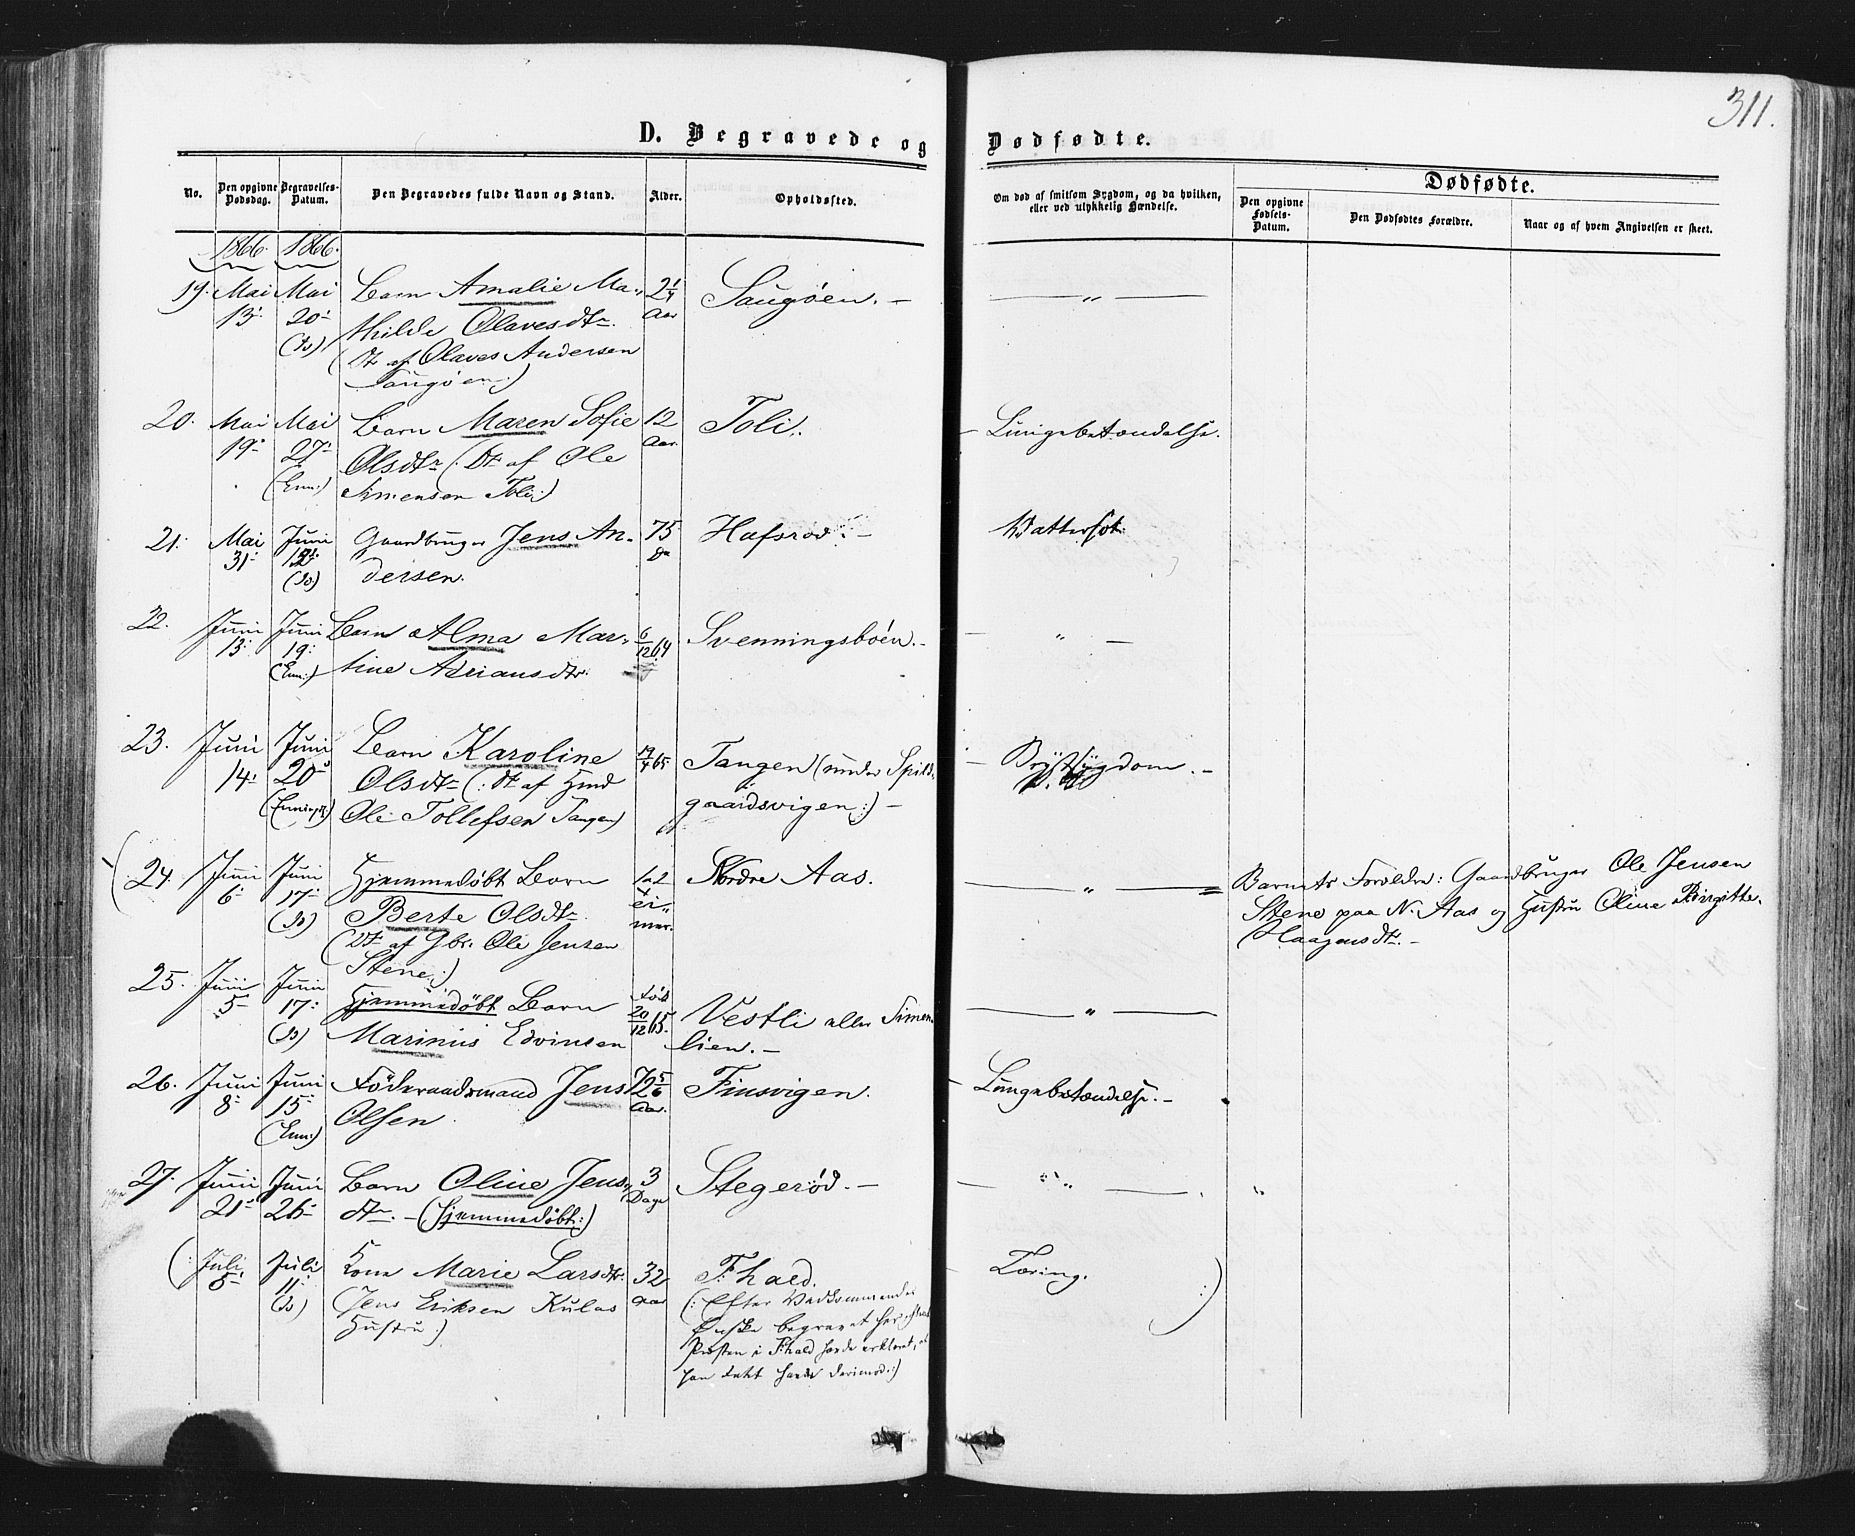 311.
D. Begravede og Dødfødte.
No.
Den opgivne Dødsdag.
Begravelses-Datum.
Den Begravedes fulde Navn og Stand.
Alder.
Opholdssted.
Om død af smitsom Sygdom, og da hvilken,
eller ved ulykkelig Hændelse.
Dødfødte.
Den opgivne Fødsels-Datum.
Den Dødfødtes Forældre.
Naar og af hvem Angivelsen er skeet.
1866. 1866.
19. Mai Mai Barn Amalie Ma-, 2 1/4 Saugøen. — — „ —
13. 20. thilde Olavesdtr. Aar
(Is) (Dtr af Olaves Andersen
Saugøen.)
20. Mai Mai Barn Maren Sofie 12 Toli. — Lungebetændelse.
19. 27. Olsdtr (: Dtr af Ole Aar.
(Enn:) Simensen Toli:)
21. Mai Juni Gaardbruger Jens An- 75 Hafsrød. — Wattersot.
31. (Is) dersen.
22. Juni Juni Barn Alma Mar- 6/12 64 Svenningsboén. — — „ —
13. 19. tine Adriansdtr.
(Enn:)
23. Juni Juni Barn Karoline 65 Tangen (under Spild- — Brystsygdom. —
14. 20. Olsdtr (: Dtr af Hmd gaardsvigen:) —
Ole Tollefsen Tangen)
(24. Juni Juni Hjemmedøbt Barn 1 a 2 Nordre Aas. — „ — Barnets Forældre: Gaardbruger Ole Jensen
6. 17. Berte Olsdtr. Ti- Stene paa N. Aas og Hustru Oline Birgitthe
(Is) (Dtr af Gbr. Ole Jensen mer. Haagensdtr. —
Stene.)
25. Juni Juni Hjemmedøbt Barn fød Vestli eller Simen- — „ —
5. 17. Marinius Edvinsen 20/12 65. lien. —
(Is)
26. Juni Juni Føderaadsmand Jens 72 5/6 Finsvigen. — Lungebetændelse. —
8. 15. Olsen Aar.
(Enn:)
27. Juni Juni Barn Oline Jens- 3 Stegerød. — — „ — „
21. 26. dtr. — (Hjemmedøbt:) Dage
(: Juli Juli Kone Marie Larsdtr. 32 F:hald. Tæring. :)
8. 11. (Jens Eriksen Kulas Aar (: Efter Vedkommendes
(Is) Hustru.) Ønske begravet her,
Præsten i F:hald havde erklæret, at
han Intet havde derimod.:)